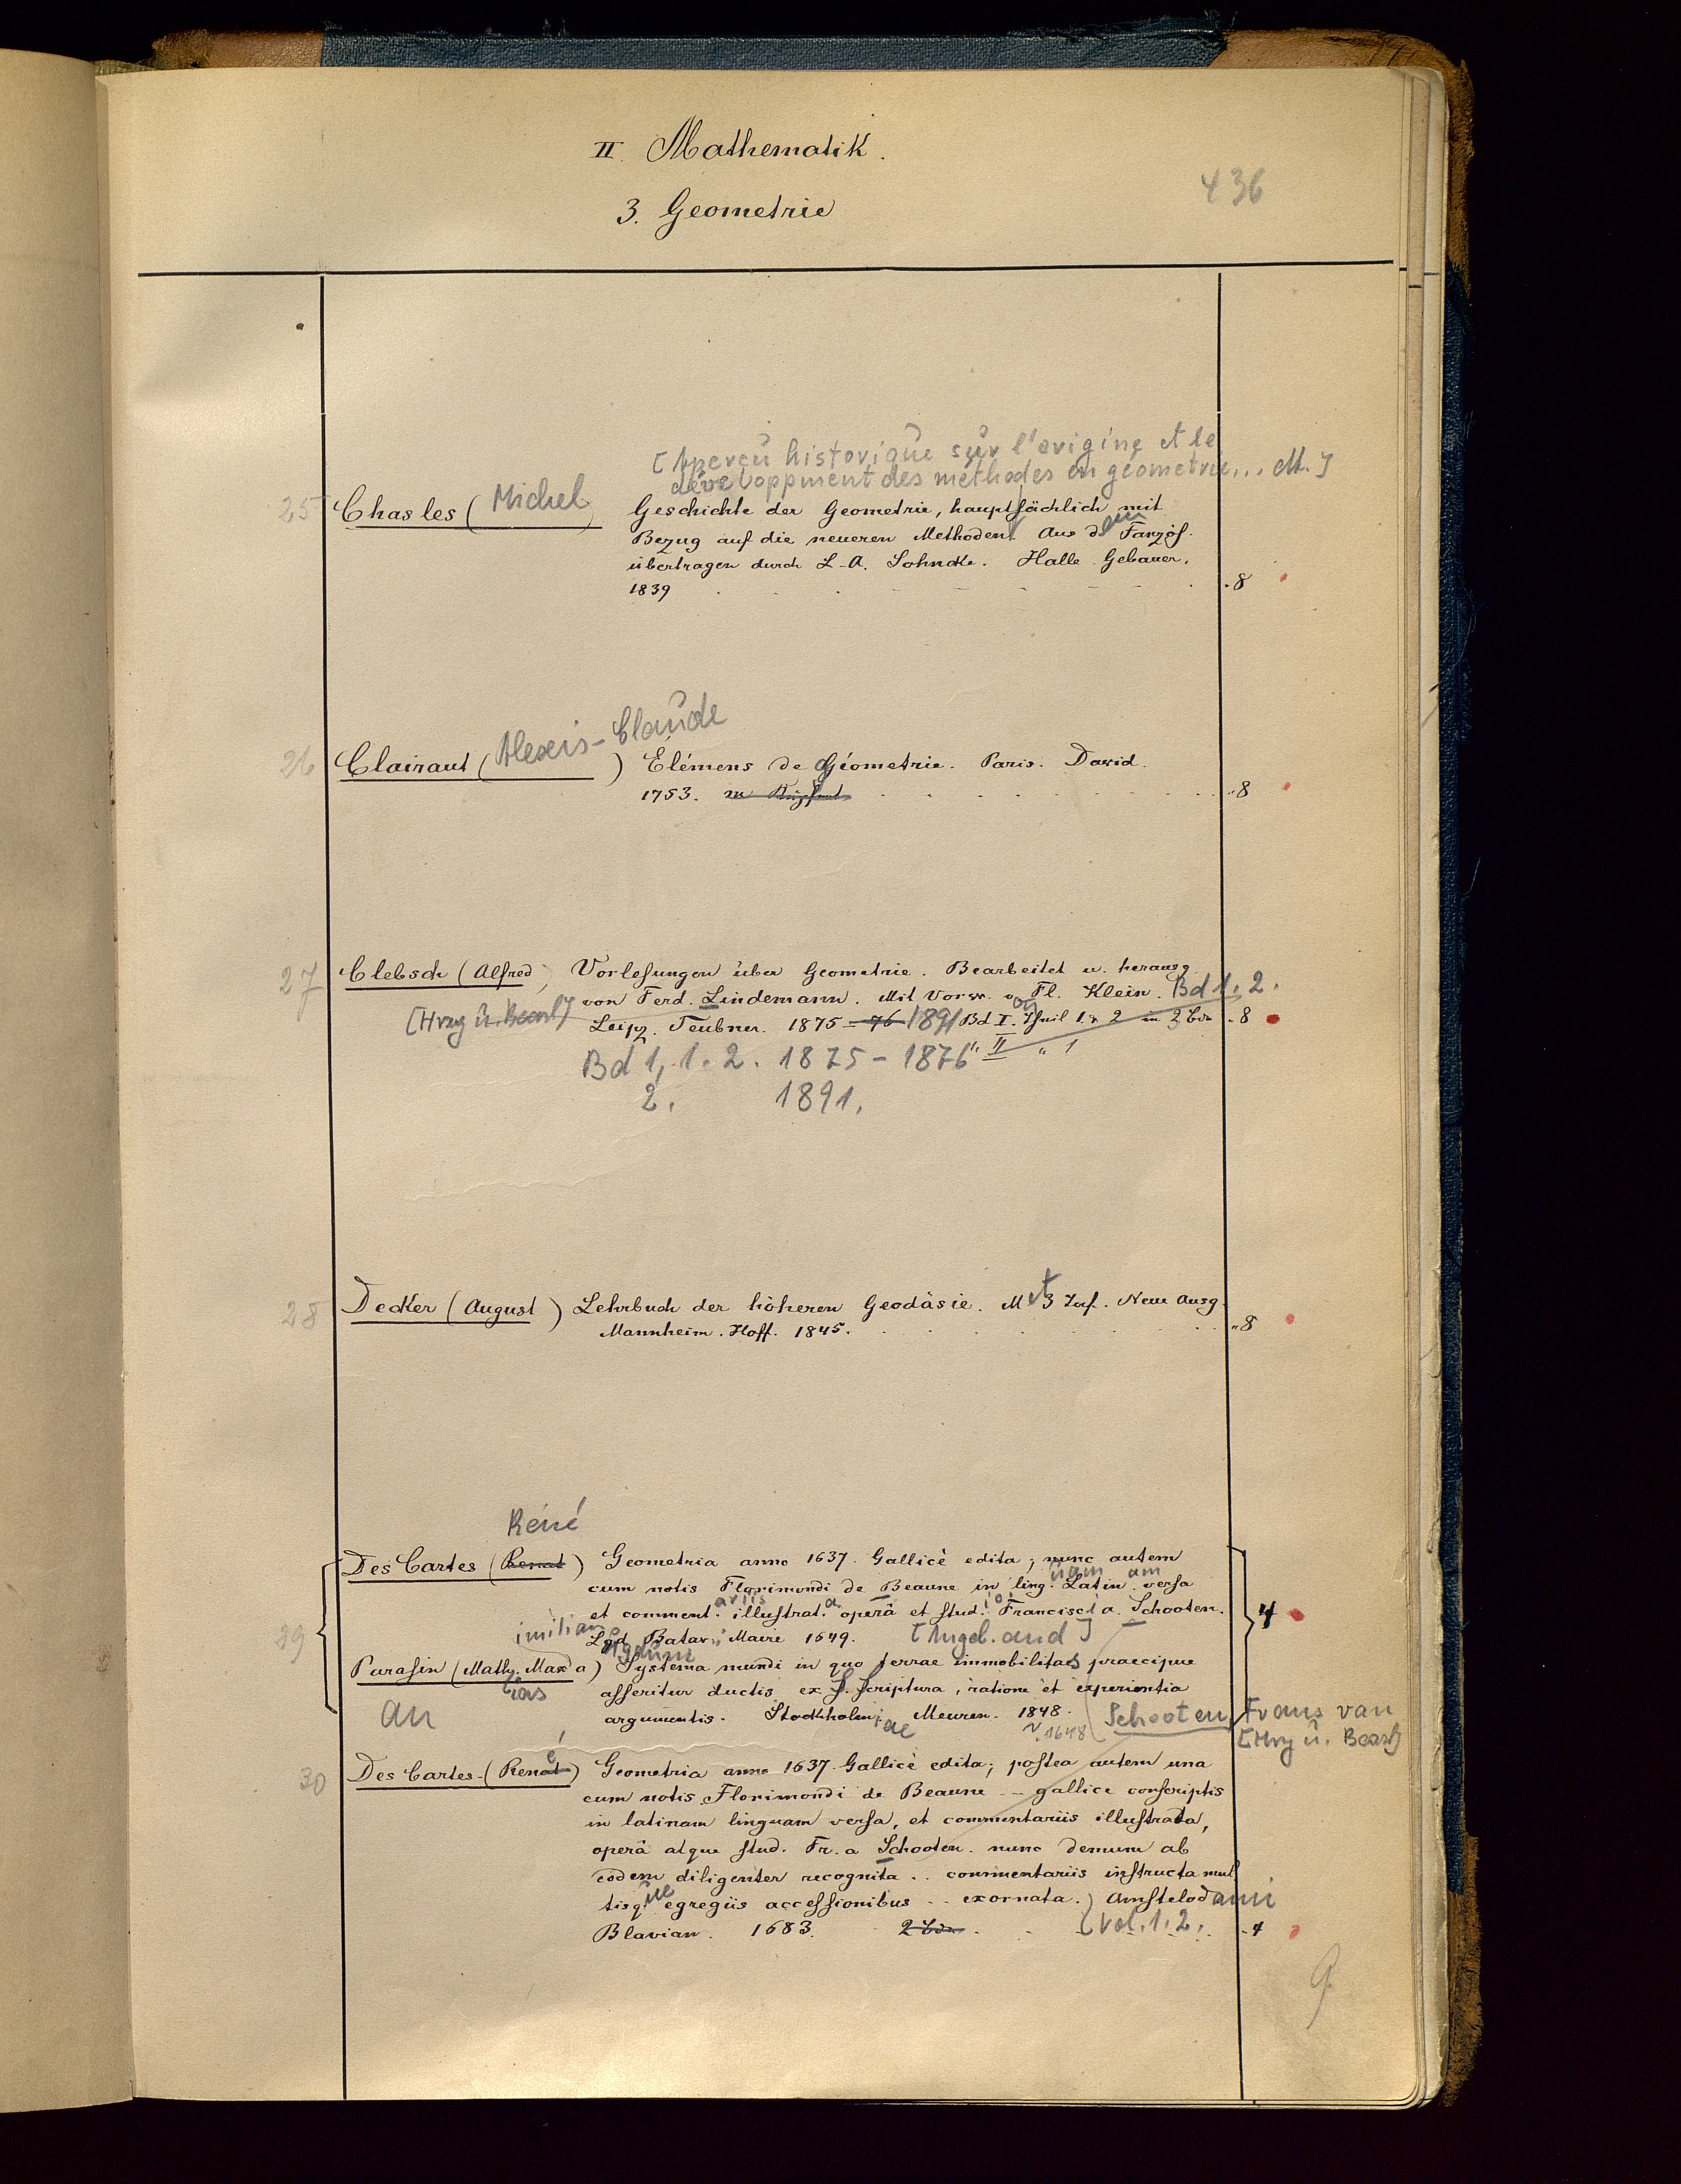 II. Mathematik.
436
3. Geometrie
[Aperçu historique sur l'origine et le
développment des méthodes en géometrie... M.]
25 Chasles (Michel) Geschichte der Geometrie, hauptsächlich mit
Bezug auf die neueren Methoden. Aus dem Fanzös.
übertragen durch L. A. Sohncke. Halle Gebauer.
1839 . 8
Alexis-Claude
26 Clairaut ( ) Élémens de Géometrie. Paris. David.
1753. 8
27 Clebsch (Alfred) Vorlesungen über Geometrie. Bearbeitet u. herausg.
von Ferd. Lindemann. Mit Vorw. v. Fl. Klein. Bd 1. 2.
[Hrsg u. Bearb] Leipz. Teubner. 1875-76 1891 Bd I. Theil 1. 2 in 2 Bdn 8
" II " 1
Bd 1, 1. 2. 1875-1876
2. 1891.
28 Decker (August) Lehrbuch der höheren Geodäsie. Mit 3 Taf. Neue Ausg.
Mannheim. Hoff. 1845. 8
René
Des Cartes (Renat) Geometria anno 1637. Gallicè edita; nunc autem
cum notis Florimondi de Beaune in linguam Latinam versa
et commentariis illustrata operâ et stud. Francisci a Schooten.
29 Lgd. Batav. Maire 1649. [Angeb. and] 4
Parasin (Matthias Maximilian a) Systema mundi in quo terrae immobilitas praecipue
asseritur ductis ex S. Scriptura, ratione et experientia
an argumentis. Stockholmiae Meuren. 1848. 1648 Schooten, Frans van
[Hrsg u. Bearb]
30 Des Cartes (René) Geometria anno 1637. Gallicè edita; postea autem una
cum notis Florimondi de Beaune -- gallice conscriptis
in latinam linguam versa, et commentariis illustrata,
operâ atque stud. Fr. a Schooten. nunc demum ab
eodem diligenter recognita .. commentariis instructa mul
tisque egregiis accessionibus .. exornata. Amstelodami
Blavian. 1683. 2 Bdn. Vol. 1. 2. 4